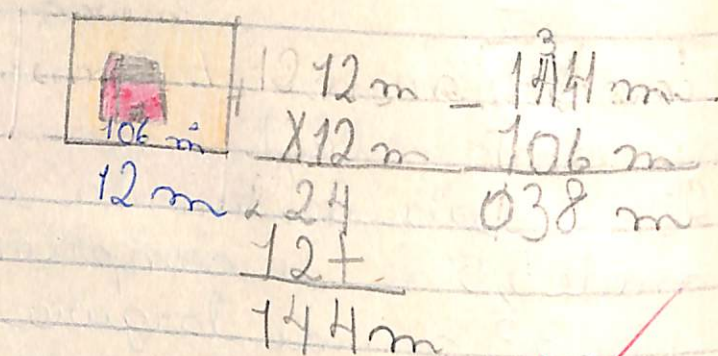 106 m
12 m
12 m
X12 m
24
12+
144 m
3
- 144 m
106 m
038 m